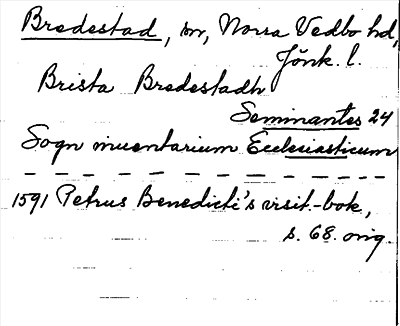 Bredestad, sn, Norra Vedbo hd,
Jönk. l.
Brista Bredestadh
Seminantes 24
Sogn inuentarium Ecclesiasticum
1591 Petrus Benedicti's visit.-bok,
s. 68. orig.